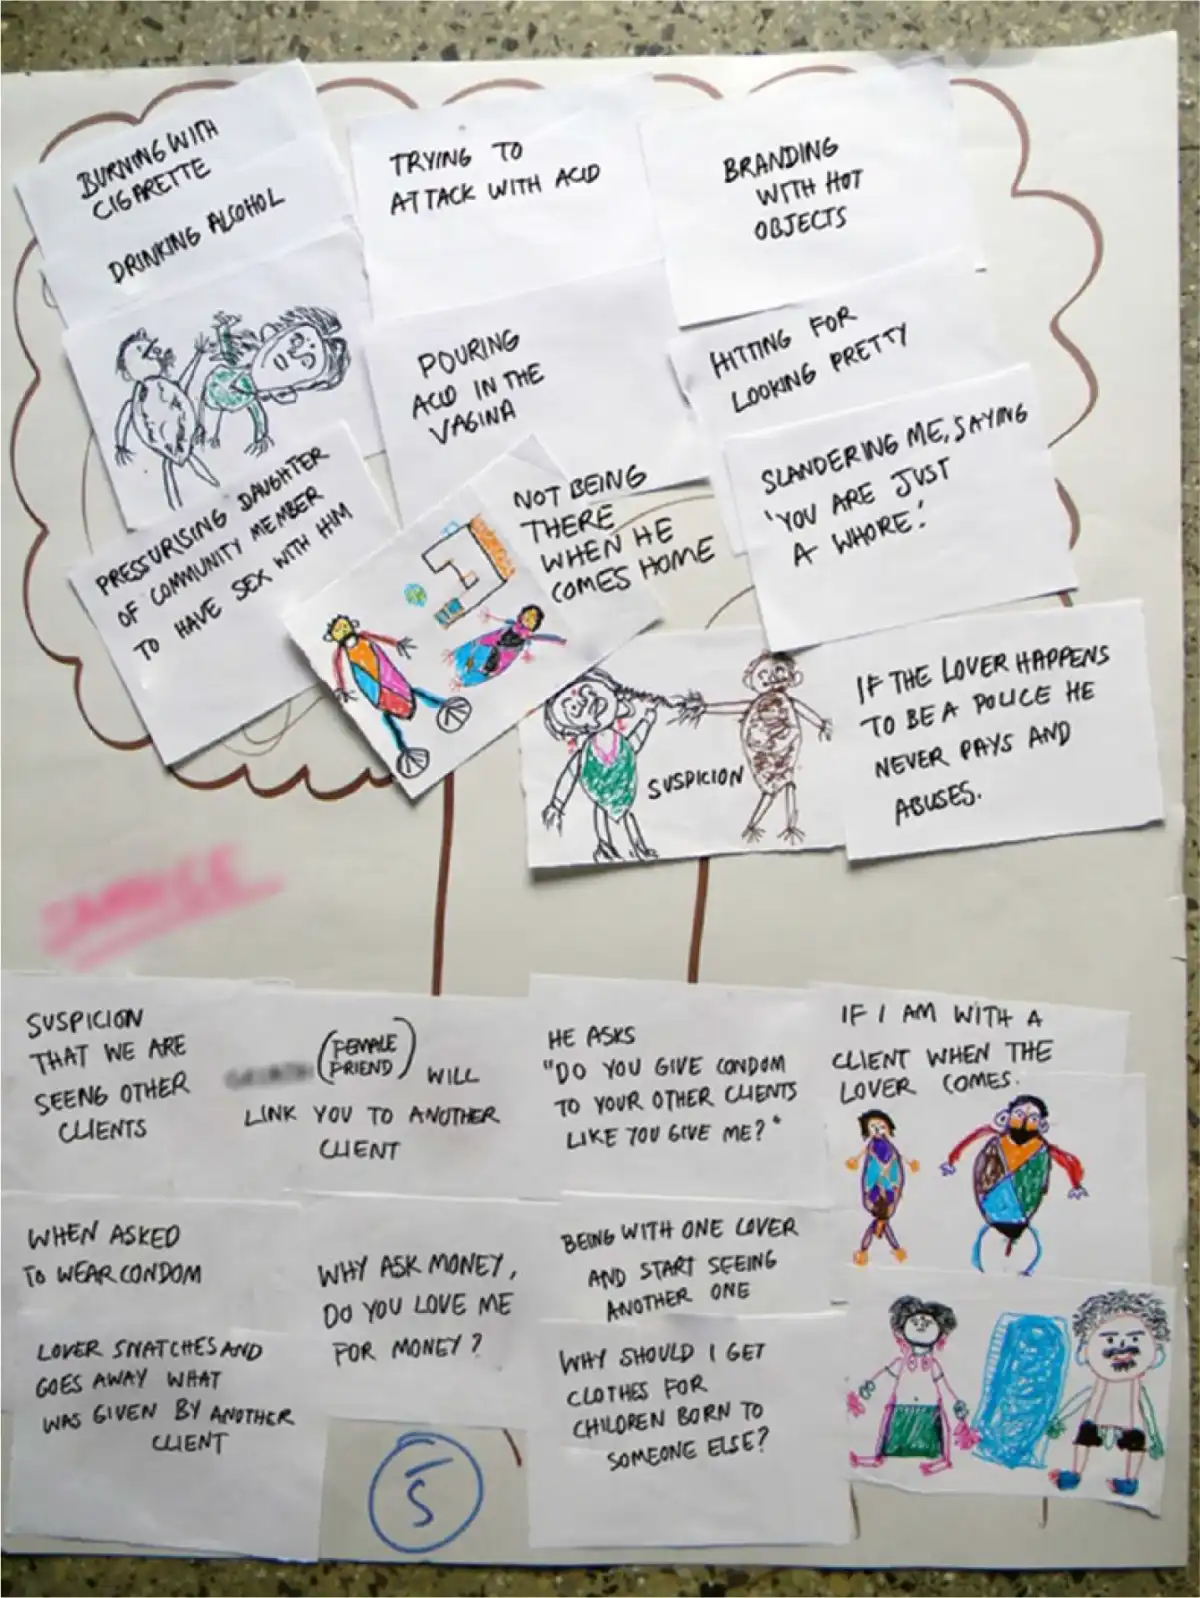 BURNING WITH
CIGARETTE
DRINKING ALCOHOL
TRYING TO
ATTACK WITH ACID
BRANDING
WITH HOT
OBJECTS
POURING
ACID IN THE
VAGINA
HITTING FOR
LOOKING PRETTY
SLANDERING ME, SAYING
'YOU ARE JUST
A WHORE.'
PRESSURISING DAUGHTER
OF COMMUNITY MEMBER
TO HAVE SEX WITH HIM
NOT BEING
THERE
WHEN HE
COMES HOME
SUSPICION
IF THE LOVER HAPPENS
TO BE A POLICE HE
NEVER PAYS AND
ABUSES.
SUSPICION
THAT WE ARE
SEENG OTHER
CLIENTS
(FEMALE
FRIEND) WILL
LINK YOU TO ANOTHER
CLIENT
HE ASKS
"DO YOU GIVE CONDOM
TO YOUR OTHER CLIENTS
LIKE YOU GIVE ME?"
IF I AM WITH A
CLIENT WHEN THE
LOVER COMES.
WHEN ASKED
TO WEAR CONDOM
LOVER SNATCHES AND
GOES AWAY WHAT
WAS GIVEN BY ANOTHER
CLIENT
WHY ASK MONEY,
DO YOU LOVE ME
FOR MONEY?
BEING WITH ONE LOVER
AND START SEEING
ANOTHER ONE
WHY SHOULD I GET
CLOTHES FOR
CHILDREN BORN TO
SOMEONE ELSE?
5